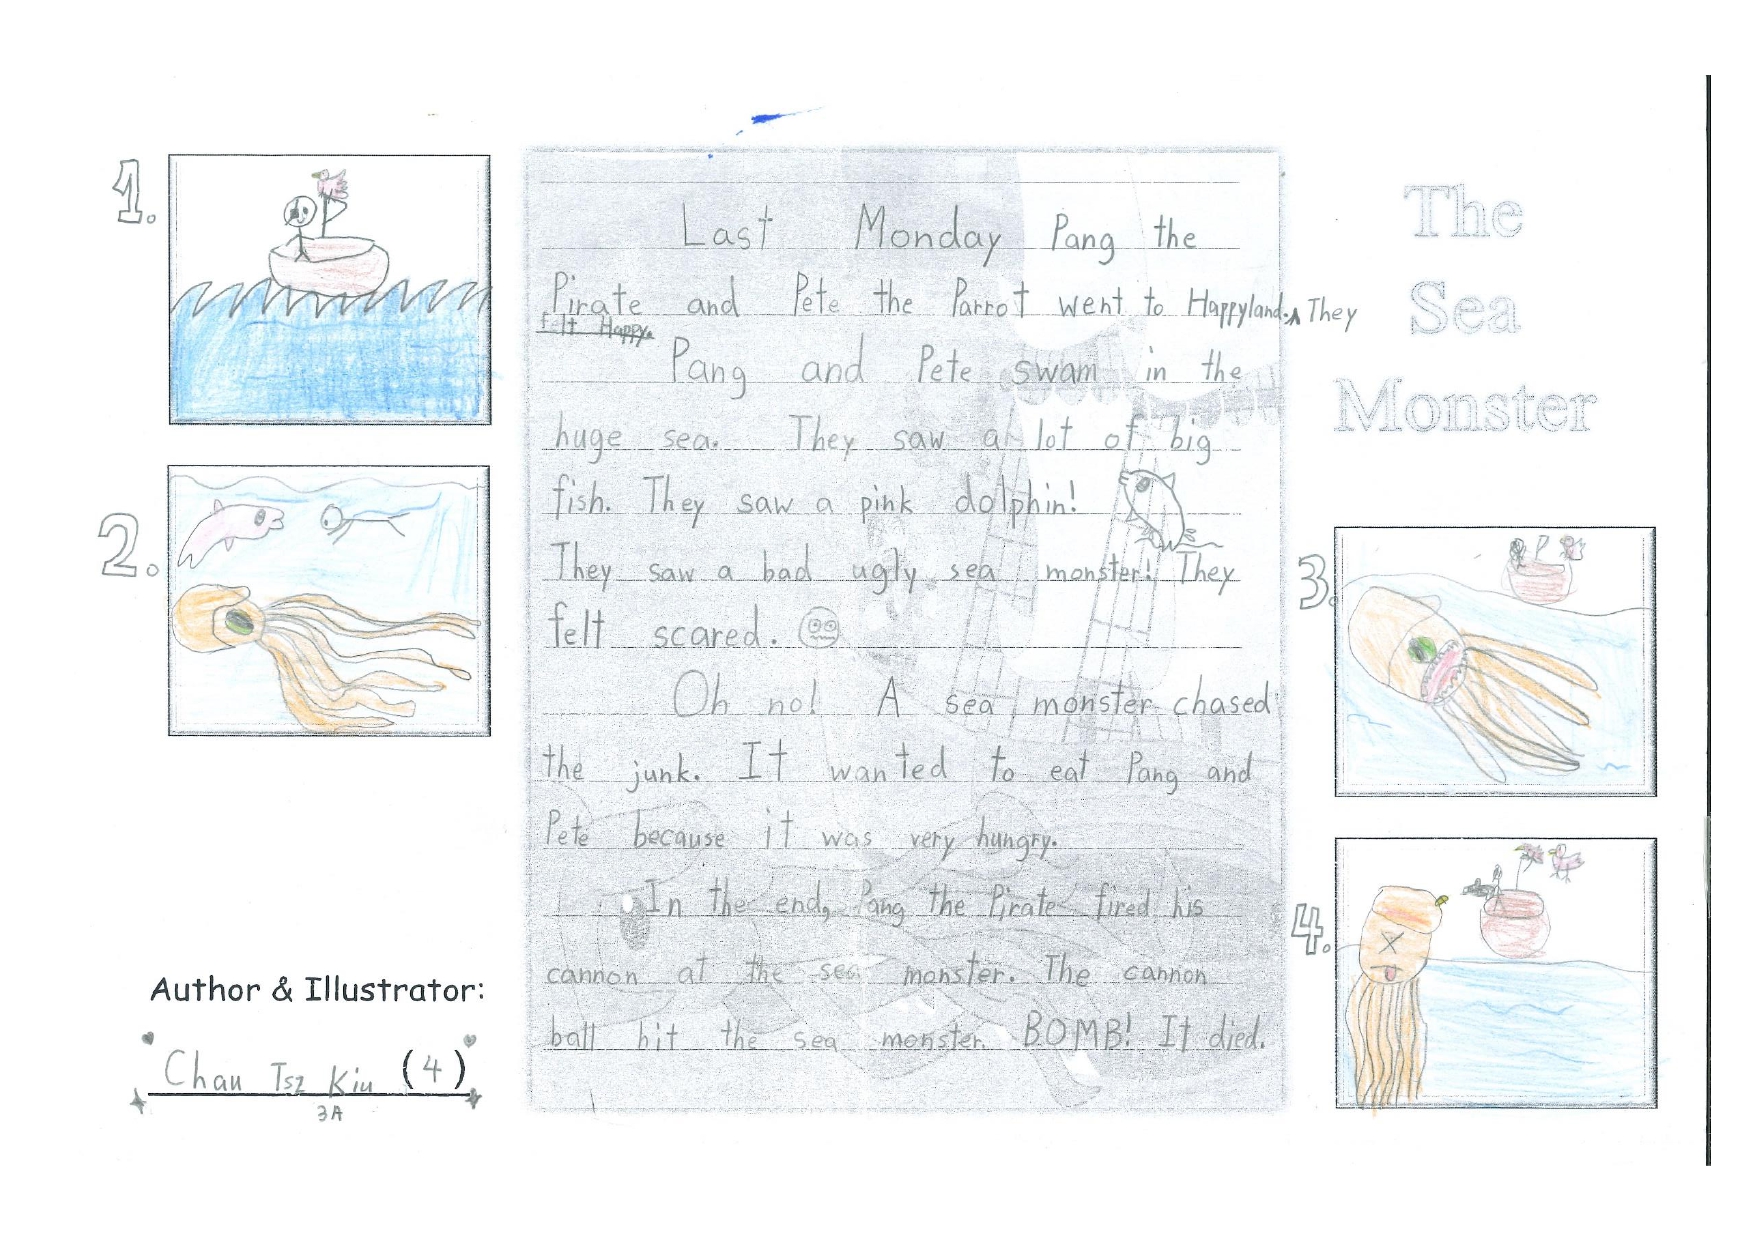 1.
2.
Author & Illustrator:
Chau Tsz Kiu (4)
3A
Last Monday Pang the
Pirate and Pete the Parrot went to Happyland. They
felt Happy.
Pang and Pete swam in the
huge sea. They saw a lot of big
fish. They saw a pink dolphin!
They saw a bad ugly sea monster! They
felt scared.
Oh no! A sea monster chased
the junk. It wanted to eat Pang and
Pete because it was very hungry.
In the end, Pang the Pirate fired his
cannon at the sea monster. The cannon
ball hit the sea monster. BOMB! It died.
The
Sea
Monster
3.
4.